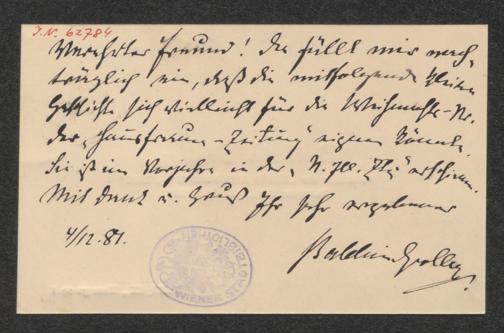 J.N. 62784
Verehrter Freund! Da fällt mir nach-
träglich ein, daß die mitfolgende kleine
Geschichte sich vielleicht für die Weihnachts-Nr.
der „Hausfrauen-Zeitung" eignen könnte.
Sie ist im Vorjahre in der „N. Ill. Ztg" erschienen.
Mit Dank u. Gruß Ihr sehr ergebener
4/12.81.
Balduin Groller
WIENER STADTBIBLIOTHEK